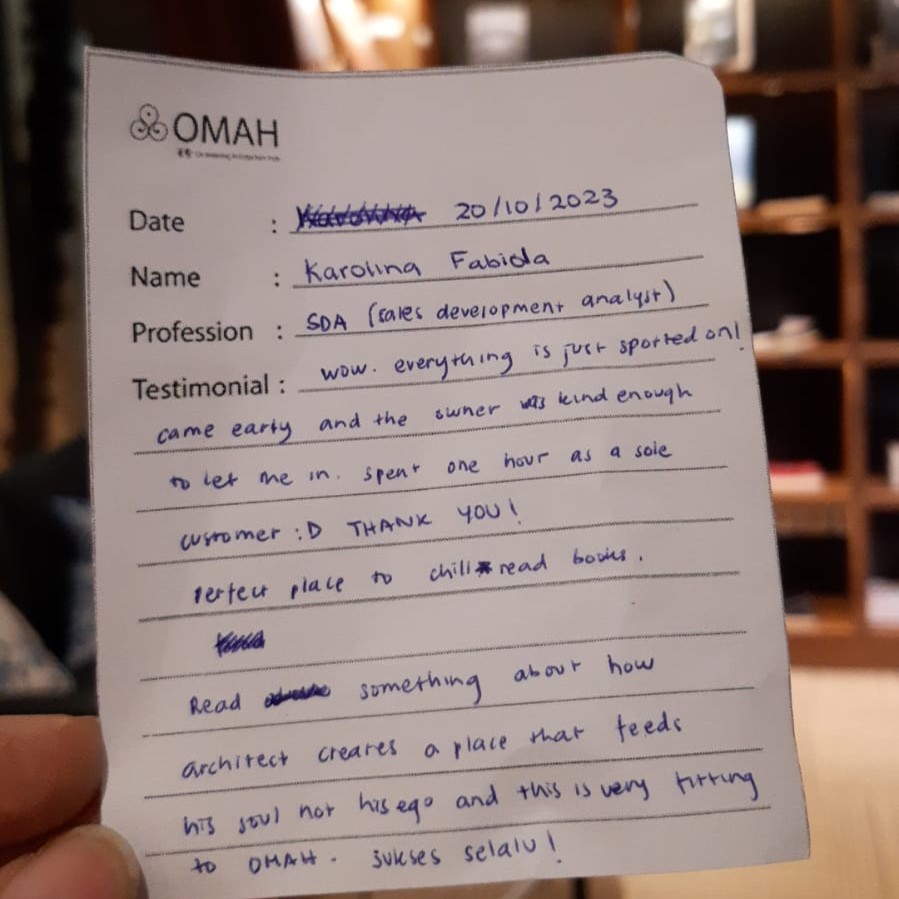 OMAH
Date : 20/10/2023
Name : Karolina Fabiola
Profession : SDA (sales development analyst)
Testimonial : wow. everything is just sported on!
came early and the owner was kind enough
to let me in. spent one hour as a sole
customer :D THANK YOU!
perfect place to chill read books.
Read something about how
architect creates a place that feeds
his soul not his ego and this is very fitting
to OMAH. sukses selalu!